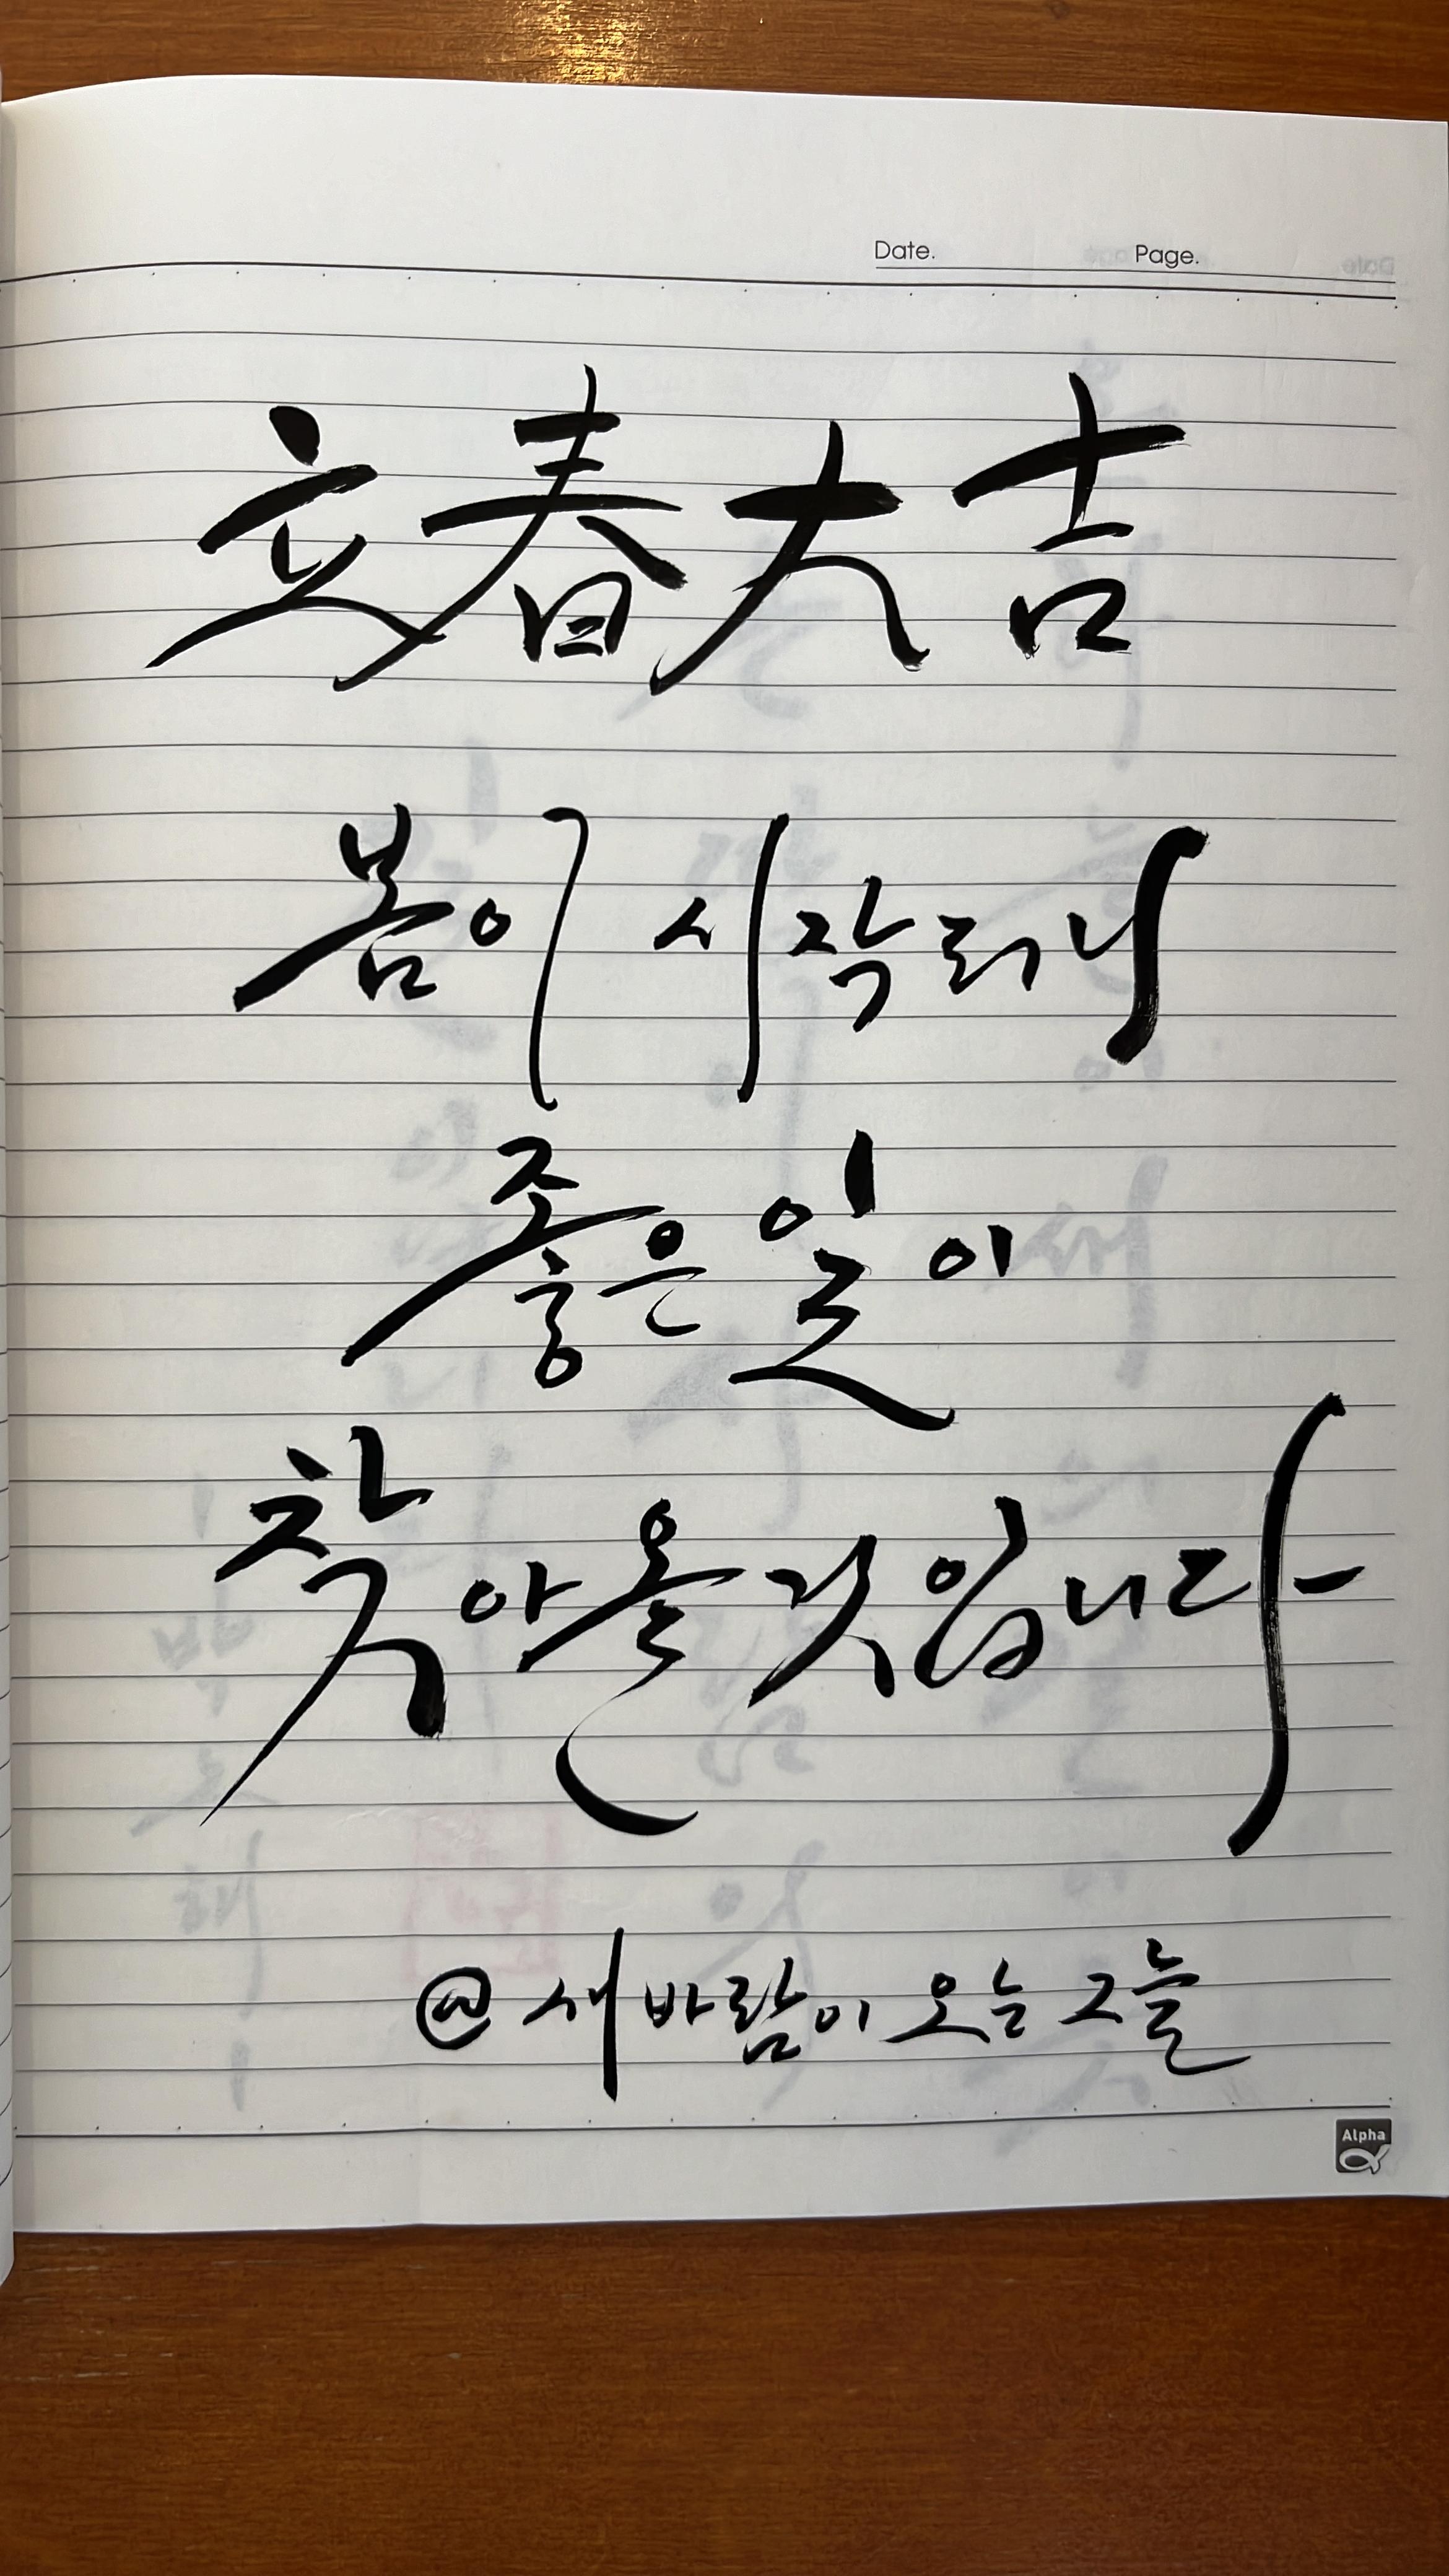 Date. Page.
立春大吉
봄이 시작되니
좋은 일이
찾아올 것입니다
@ 새바람이 오는 그늘
Alpha